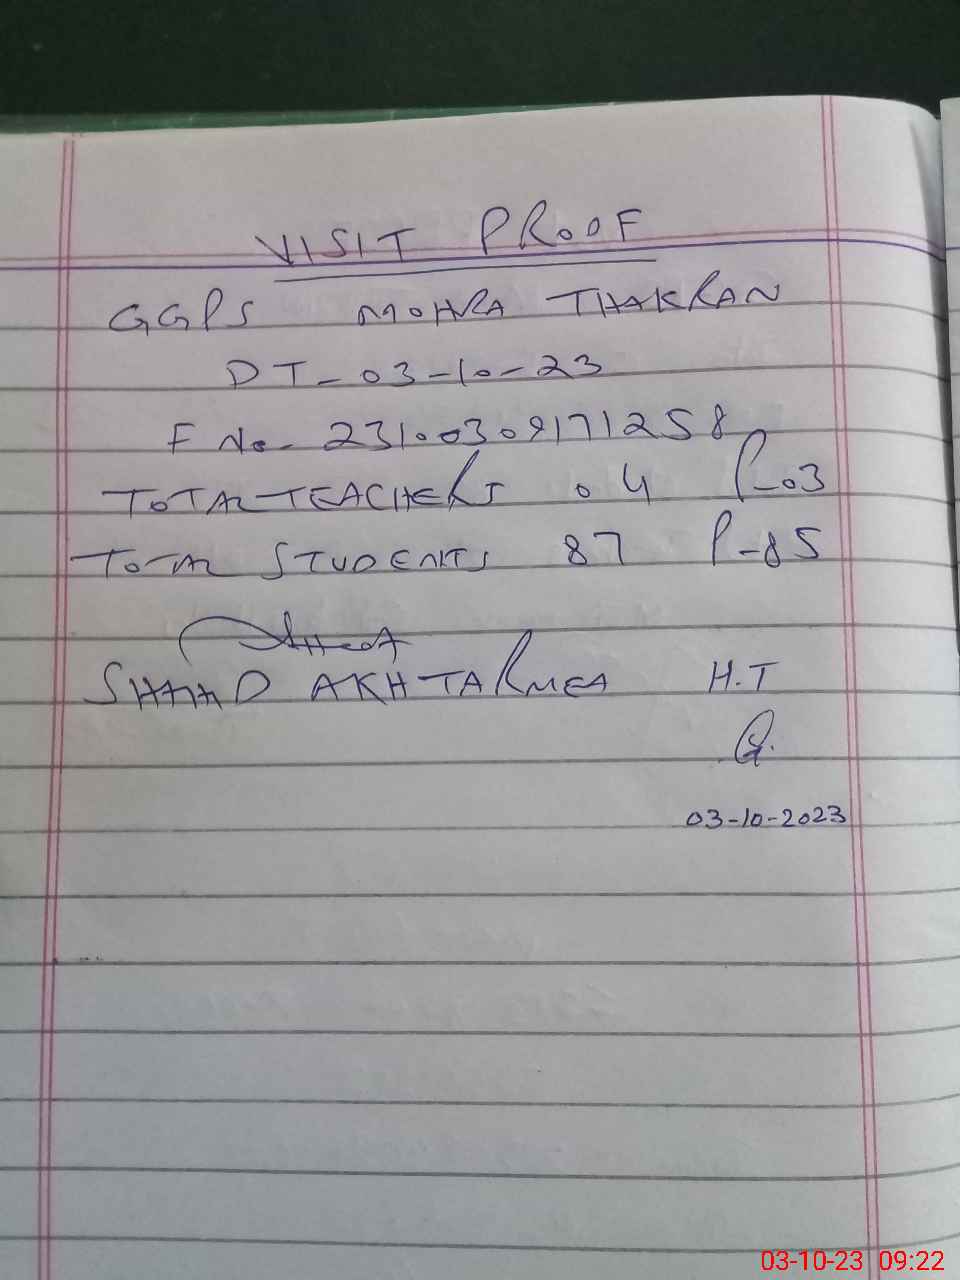 VISIT PROOF
GGPS MOHRA THAKRAN
DT-03-10-23
F No- 23100309171258
TOTAL TEACHERS 04 P-03
TOTAL STUDENTS 87 P-85
AKHTAR MEA H.T
03-10-2023
03-10-23 09:22